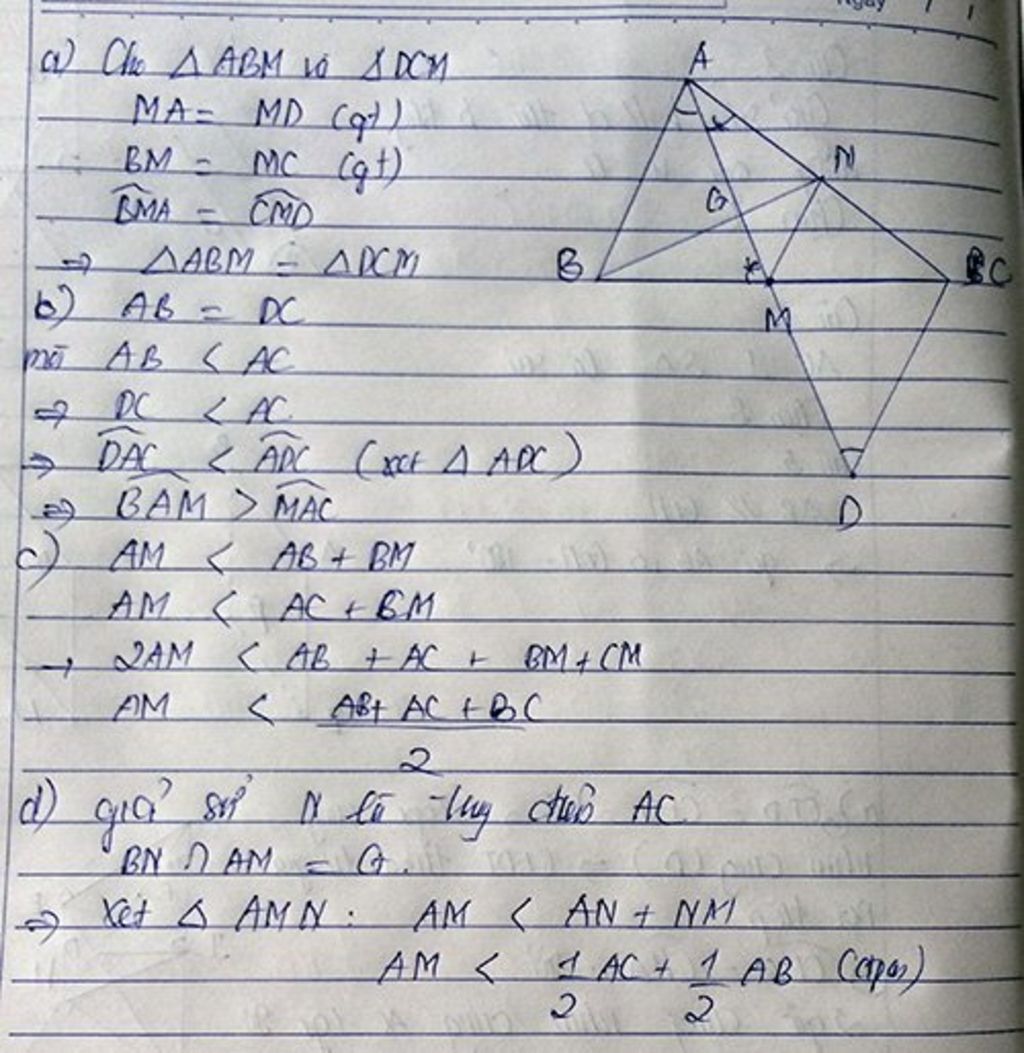 Ngày / /
a) Cho △ABM và △DCM
MA = MD (gt)
BM = MC (gt)
\widehat{BMA} = \widehat{CMD}
⇒ △ABM = △DCM
b) AB = DC
mà AB < AC
⇒ DC < AC
⇒ \widehat{DAC} < \widehat{ADC} (xét △ ADC)
⇒ \widehat{BAM} > \widehat{MAC}
c) AM < AB + BM
AM < AC + BM
→ 2AM < AB + AC + BM + CM
AM < \frac{AB + AC + BC}{2}
d) giả sử N là điểm AC
BN ∩ AM = G.
⇒ Xét △ AMN : AM < AN + NM
AM < \frac{1}{2} AC + \frac{1}{2} AB (đpcm)
A
N
G
B
C
M
D